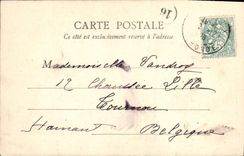 16
CARTE POSTALE
Ce côté est exclusivement réservé à l'adresse
Mademoiselle Vandroy
12 Chaussée Lille
Tournai
Hainaut Belgique